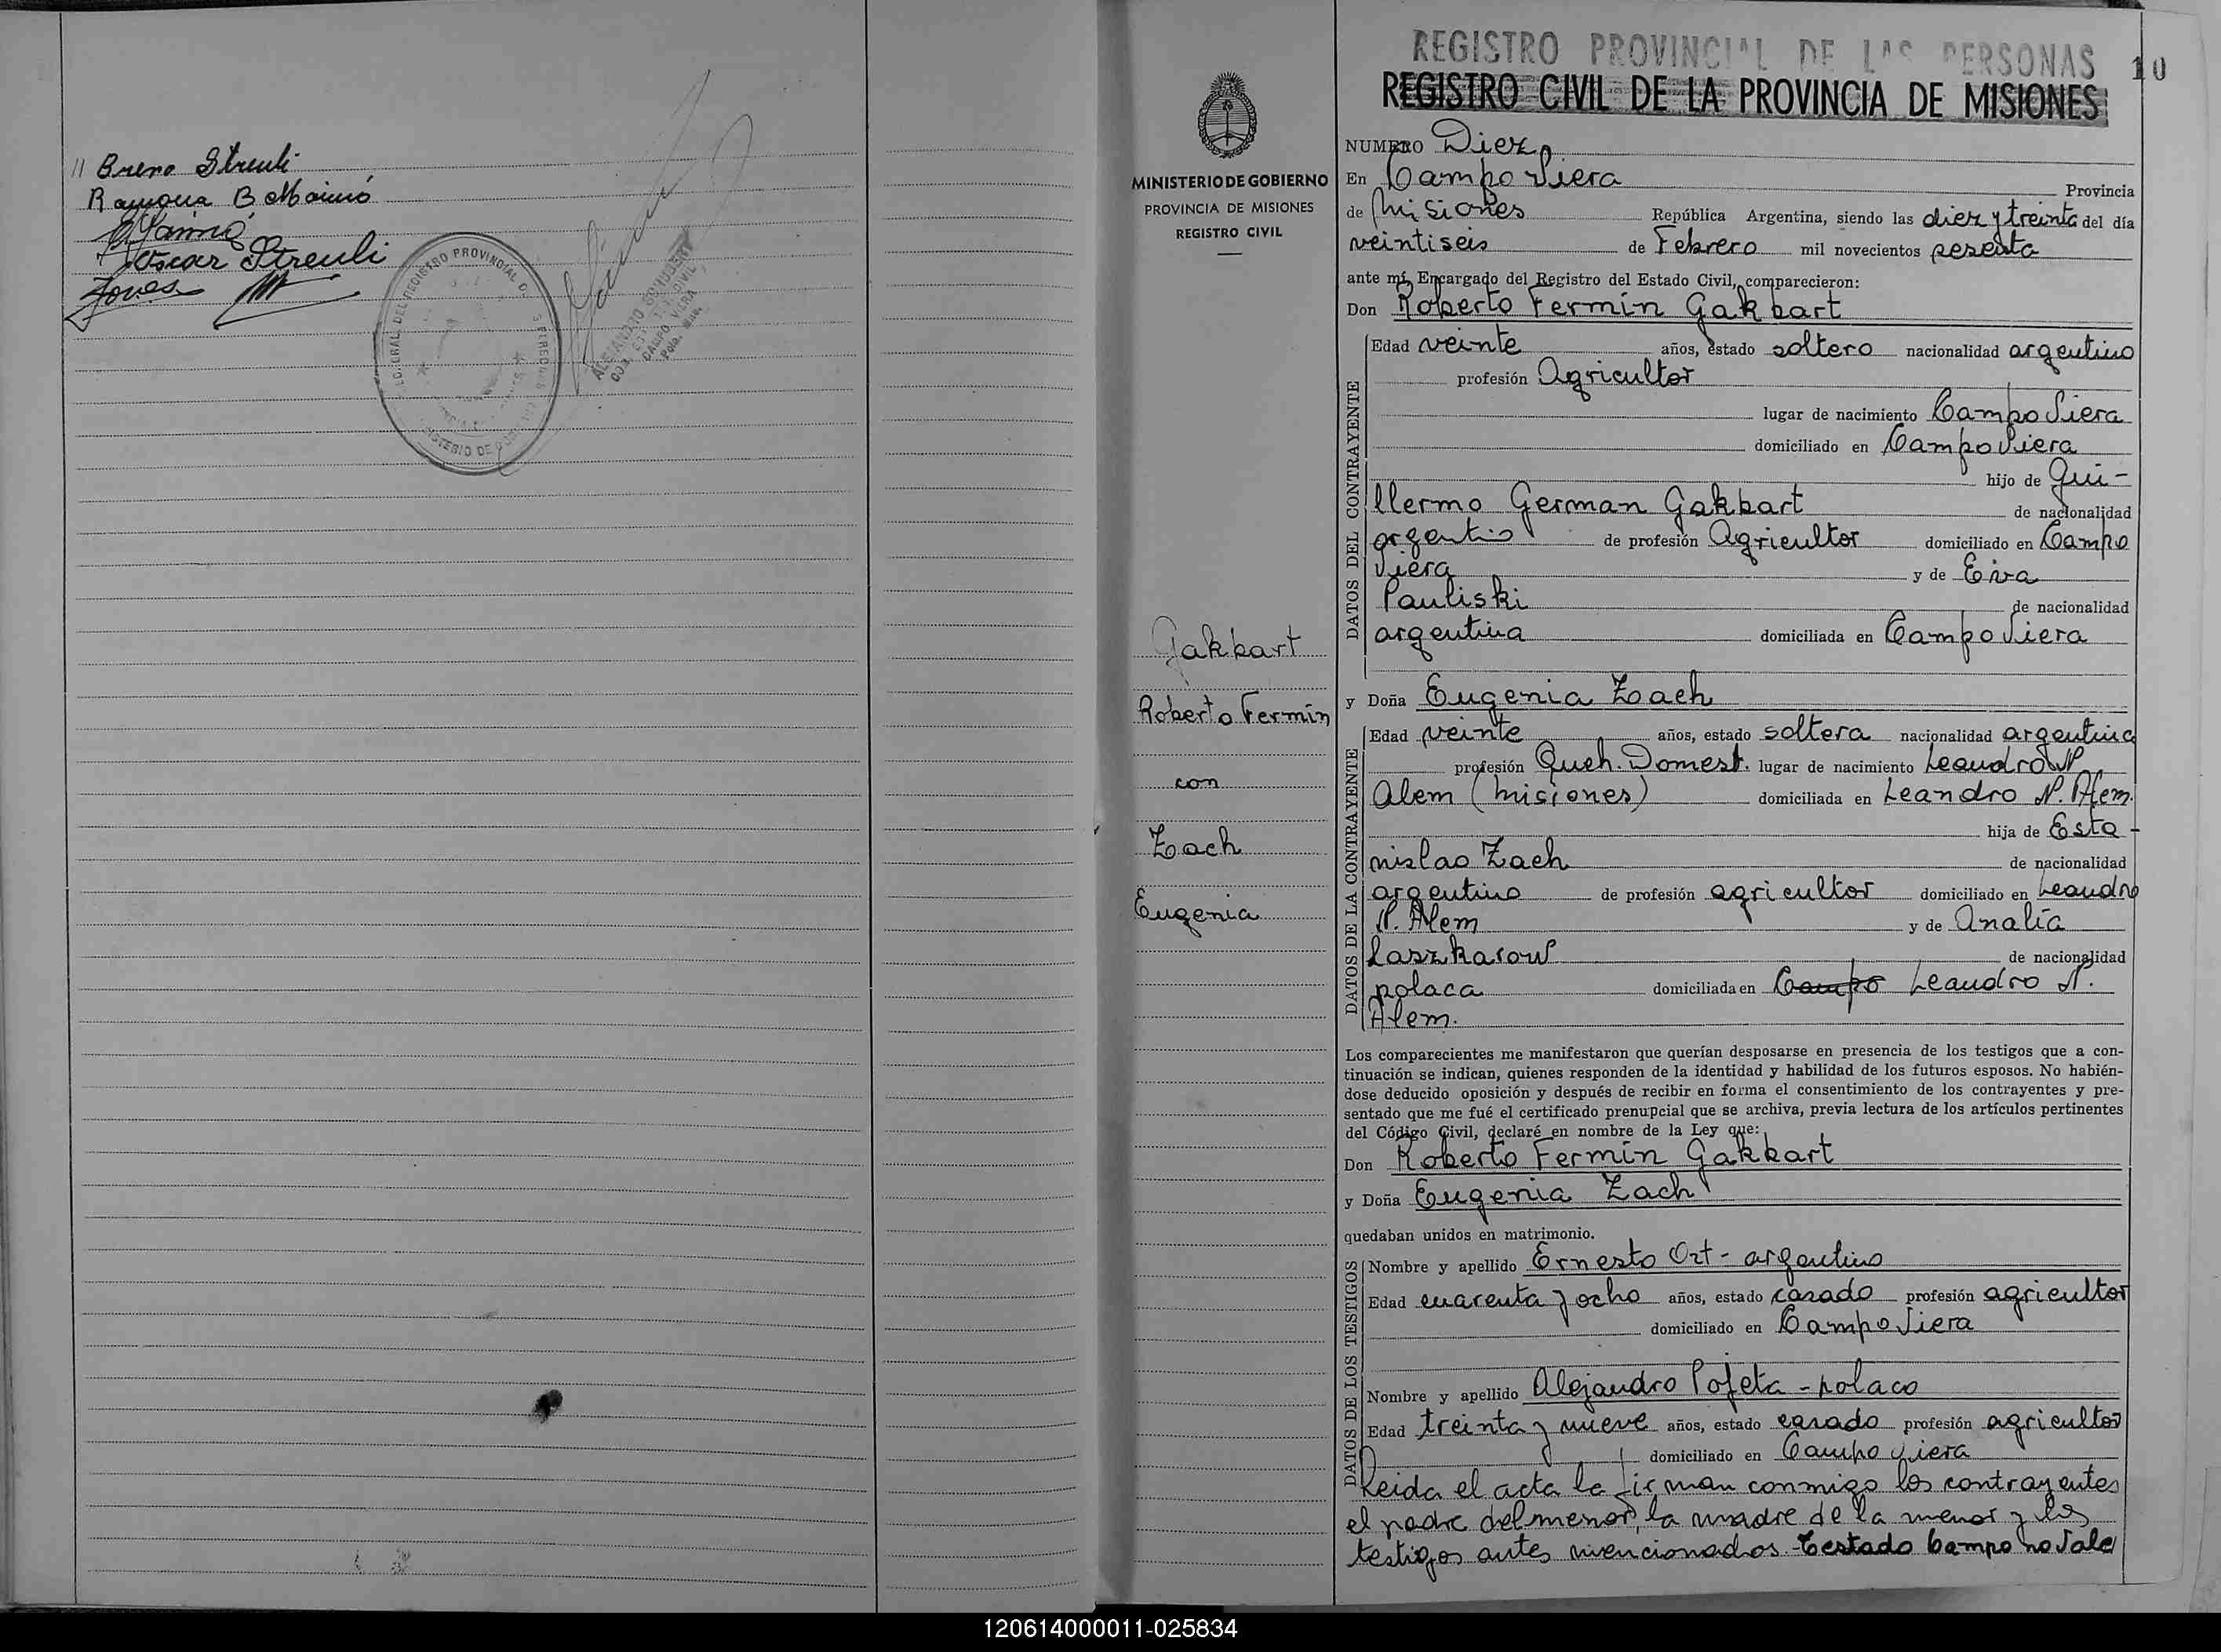 // Breno Streuli
Ramona B Mainó
Oscar Streuli
ALEJANDRO SCHUBERT
CAMPO VIERA
MINISTERIO DE GOBIERNO
PROVINCIA DE MISIONES
REGISTRO CIVIL
Gakbart
Roberto Fermín
con
Zach
Eugenia
REGISTRO PROVINCIAL DE LAS PERSONAS
10
REGISTRO CIVIL DE LA PROVINCIA DE MISIONES
NUMERO Diez
En Campo Viera Provincia
de Misiones República Argentina, siendo las diez y treinta del día
veintiseis de Febrero mil novecientos sesenta
ante mí, Encargado del Registro del Estado Civil, comparecieron:
Don Roberto Fermín Gakbart
DATOS DEL CONTRAYENTE
Edad veinte años, estado soltero nacionalidad argentino
profesión Agricultor
lugar de nacimiento Campo Viera
domiciliado en Campo Viera
hijo de Gui-
llermo German Gakbart de nacionalidad
argentino de profesión Agricultor domiciliado en Campo
Viera y de Eva
Pauliski de nacionalidad
argentina domiciliada en Campo Viera
y Doña Eugenia Zach
DATOS DE LA CONTRAYENTE
Edad veinte años, estado soltera nacionalidad argentina
profesión Queh. Domest. lugar de nacimiento Leandro N
Alem (Misiones) domiciliada en Leandro N. Alem.
hija de Esta-
nislao Zach de nacionalidad
argentino de profesión agricultor domiciliado en Leandro
N. Alem y de Analía
Laszkarow de nacionalidad
polaca domiciliada en Campo Leandro N.
Alem.
Los comparecientes me manifestaron que querían desposarse en presencia de los testigos que a con-
tinuación se indican, quienes responden de la identidad y habilidad de los futuros esposos. No habién-
dose deducido oposición y después de recibir en forma el consentimiento de los contrayentes y pre-
sentado que me fué el certificado prenupcial que se archiva, previa lectura de los artículos pertinentes
del Código Civil, declaré en nombre de la Ley que:
Don Roberto Fermín Gakbart
y Doña Eugenia Zach
quedaban unidos en matrimonio.
DATOS DE LOS TESTIGOS
Nombre y apellido Ernesto Ort - argentino
Edad cuarenta y ocho años, estado casado profesión agricultor
domiciliado en Campo Viera
Nombre y apellido Alejandro Pofeta - polaco
Edad treinta y nueve años, estado casado profesión agricultor
domiciliado en Campo Viera
Leida el acta la firman conmigo los contrayentes
el padre del menor, la madre de la menor y los
testigos antes mencionados. Testado Campo no vale
120614000011-025834